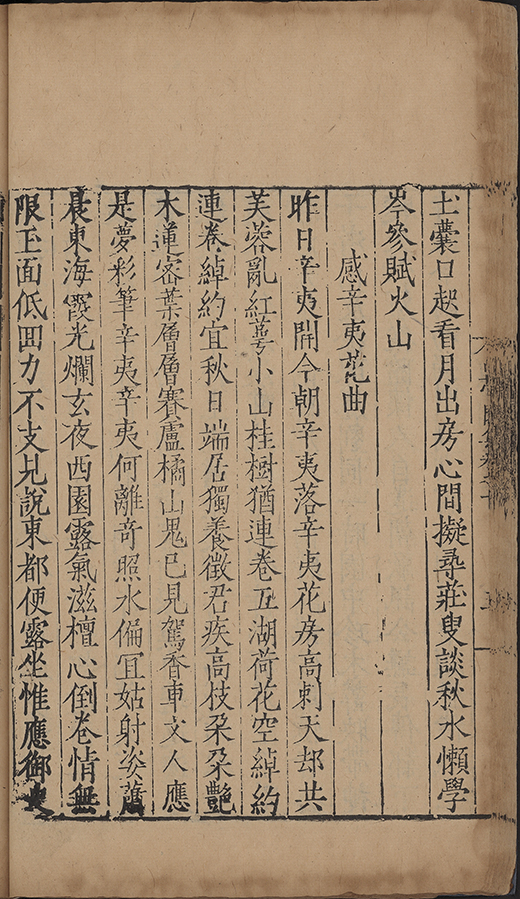 土囊口起看月出房心間擬尋莊叟談秋水懶學
岑參賦火山
感辛夷花曲
昨日辛夷開今朝辛夷落辛夷花房高刺天却共
芙蓉亂紅萼小山桂樹猶連卷五湖荷花空綽約
連卷綽約宜秋日端居獨養徵君疾高枝朶朶艷
木蓮宻葉層層賽盧橘山鬼已見駕香車文人應
是夢彩筆辛夷辛夷何離竒照水偏宜姑射姿薦
晨東海霞光爛玄夜西園露氣滋檀心倒卷情無
限玉面低回力不支見說東都便露坐惟應御